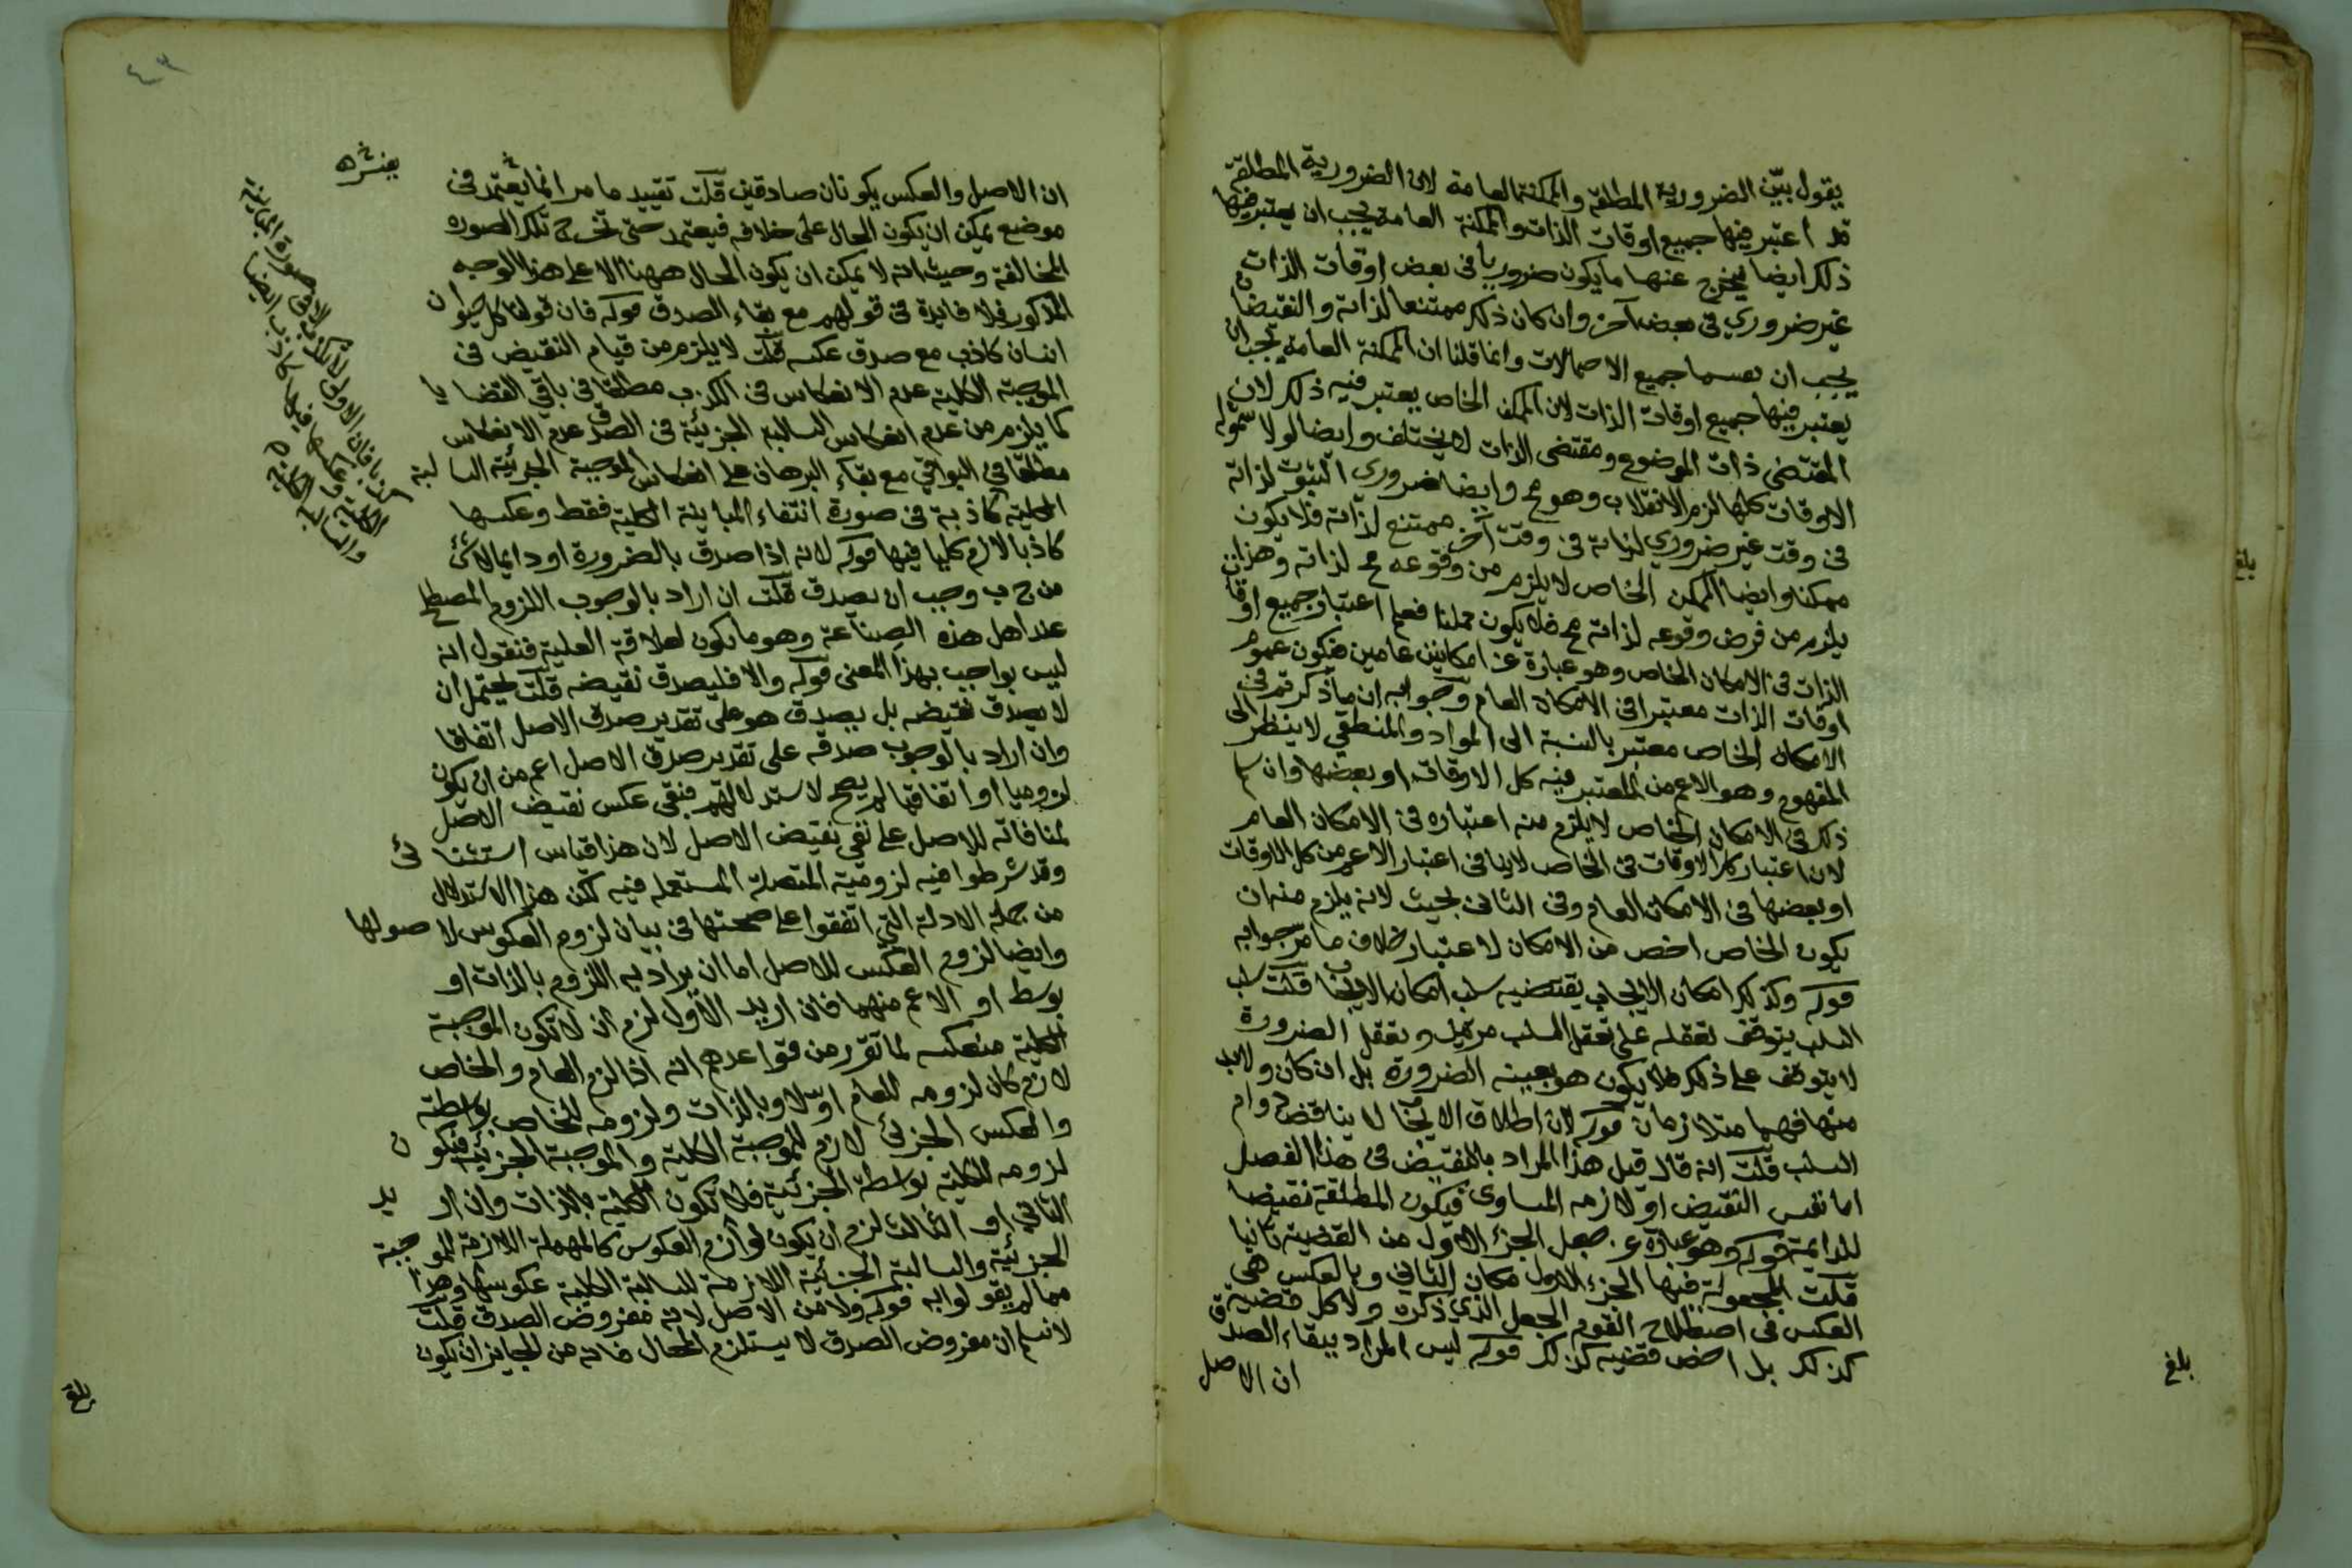 يقول بين الضرورية المطلقة والممكنة العامة لان الضرورية المطلقة
قد اعتبر فيها جميع اوقات الذات والممكنة العامة يجب ان يعتبر فيها
ذلك ايضا ليخرج عنها ما يكون ضروريا في بعض اوقات الذات
غير ضروري في بعض آخر وان كان ذلك ممتنعا لذاته والنقيضان
يجب ان جميع الاحتمالات وانما قلنا ان الممكنة العامة يجب ان
يعتبر فيها جميع اوقات الذات لان الممكن الخاص يعتبر فيه ذلك لان
المقتضى ذات الموضوع ومقتضى الذات لا يختلف وايضا لولا شموله
الاوقات كلها لزم الانقلاب وهو مح وايضا ضروري الثبوت لذاته
في وقت غير ضروري لذاته في وقت آخر ممتنع لذاته فلا يكون
ممكنا وايضا الممكن الخاص لا يلزم من وقوعه مح لذاته وهذا
يلزم من فرض وقوعه لذاته مح فلا يكون ممكنا فعلم اعتبار جميع اوقات
الذات في الامكان الخاص وهو عبارة عن امكانين عامين فيكون عموم
اوقات الذات معتبرا في الامكان العام وجوابه ان ما ذكرتم في
الامكان الخاص معتبر بالنسبة الى المواد والمنطقي لا ينظر الى
المفهوم وهو الاعم من المعتبر فيه كل الاوقات او بعضها وان سلم
ذلك في الامكان الخاص لا يلزم منه اعتباره في الامكان العام
لان اعتبار كل الاوقات في الخاص لا ينافي اعتبار الاعم من كل الاوقات
او بعضها في الامكان العام وفي الثاني بحيث لانه يلزم منه ان
يكون الخاص اخص من الامكان لاعتبار خلاف ما مر جوابه
قوله وكذلك امكان الايجاب يقتضيه سلب امكان الايجاب قلت سلب
السلب يتوقف تعقله على تعقل السلب مرتين وتعقل الضرورة
لا يتوقف على ذلك فلا يكون هو بعينه الضرورة بل ان كان ولابد
منها فهما متلازمان قوله لان اطلاق الايجاب لا يناقض دوام
السلب قلت انه قال قبل هذا المراد بالنقيض في هذا الفصل
اما نفس النقيض او لازمه المساوى فيكون المطلقة نقيضا
للدايمة قوله وهو عبارة عن جعل الجزء الاول من القضية ثانيا
قلت المجعولة فيها الجزء الاول مكان الثاني وبالعكس هي
العكس في اصطلاح القوم الجعل الذي ذكره ولا كل قضية
كذلك بل اخص قضية كذلك قوله ليس المراد ببقاء الصدق
ان الاصل
بلغ
بلغ
٤٣
ان الاصل والعكس يكونان صادقين قلت تقييد ما مر انما يعتمد في
موضع يمكن ان يكون الحال على خلافه فيعتمد حتى تخرج تلك الصوره
المخالفة وحيث انه لا يمكن ان يكون الحال ههنا الا على هذا الوجه
المذكور فلا فايدة في قولهم مع بقاء الصدق قوله فان قولنا كل حيوان
انسان كاذب مع صدق عكسه قلت لا يلزم من قيام النقيض في
الموجبة الكلية عدم الانعكاس في الكذب مطلقا في باقي القضايا
كما يلزم من عدم انعكاس السالبة الجزئية في الصدق عدم الانعكاس
مطلقا في البواقي مع بقاء البرهان على انعكاس الموجبة الجزئية السالبة
الكلية كاذبة في صورة انتفاء المباينة الكلية فقط وعكسها
كاذبا لازم كليا فيها قوله لانه اذا صدق بالضرورة او دايما لا شئ
من ج ب وجب ان يصدق قلت ان اراد بالوجوب اللزوم المصطلح
عند اهل هذه الصناعة وهو ما يكون لعلاقة العلية فنقول انه
ليس بواجب بهذا المعنى قوله والا فليصدق نقيضه قلت يحتمل ان
لا يصدق نقيضه بل يصدق هو على تقدير صدق الاصل اتفاقا
وان اراد بالوجوب صدقه على تقدير صدق الاصل اعم من ان يكون
لزوميا او اتفاقيا لم يصح لاستدلالهم فنفي عكس نقيض الاصل
لمنافاته للاصل على نفي نقيض الاصل لان هذا قياس استثنائي
وقد شرطوا فيه لزومية المتصلة المستعملة فيه لكن هذا الاستدلال
من جملة الادلة التي اتفقوا على صحتها في بيان لزوم العكوس لاصولها
وايضا لزوم العكس للاصل اما ان يراد به اللزوم بالذات او
بوسط او الاعم منهما فان اريد الاول لزم ان لا تكون الموجبة
الكلية منعكسه لما تقرر من قواعدهم انه اذا لزم العام والخاص
لازم كان لزومه للعام اولا وبالذات ولزومه للخاص بواسطته
والعكس الجزئي لازم للموجبة الكلية والموجبة الجزئية فيكون
لزومه للكلية بواسطة الجزئية فلا تكون الكلية بالذات وان اريد
الثاني او الثالث لزم ان يكون لوازم العكوس كالمهملة اللازمة للموجبة
الجزئية والسالبة الجزئية اللازمة للسالبة الكلية عكوسها وهذا
مما لم يقولوا به قوله ولا من الاصل لانه مفروض الصدق قلت
لا نسلم ان مفروض الصدق لا يستلزم المحال فانه من الجايز ان يكون
بلغ